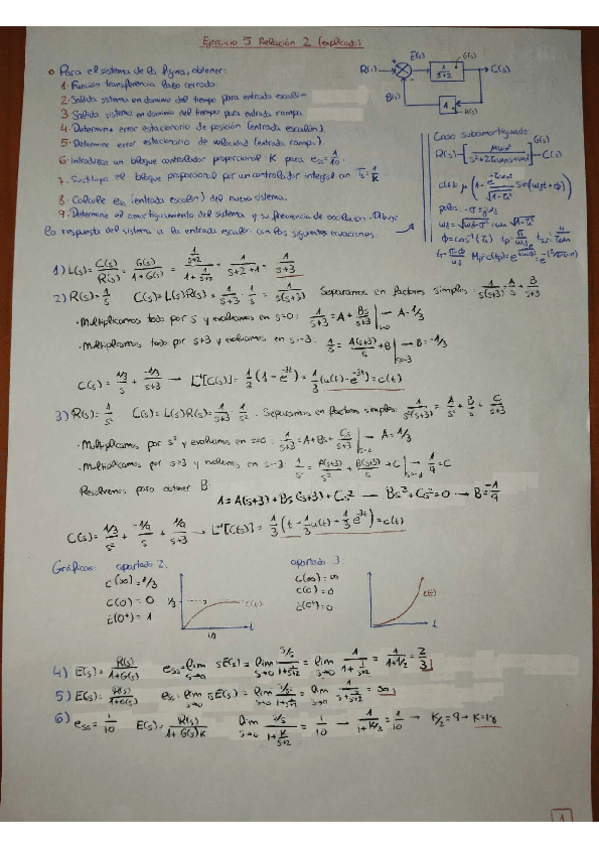 Ejercicio 5 Relación 2 (explicado)
• Para el sistema de la figura, obtener:
1. Función transferencia lazo cerrado.
2. Salida sistema en dominio del tiempo para entrada escalón
3. Salida sistema en dominio del tiempo para entrada rampa.
4. Determine error estacionario de posición (entrada escalón).
5. Determine error estacionario de velocidad (entrada rampa).
6. Introduzca un bloque controlador proporcional K para ess = 1/10.
7. Sustituya el bloque proporcional por un controlador integral con 1/K
8. Calcule ess (entrada escalón) del nuevo sistema.
9. Determine el amortiguamiento del sistema y su frecuencia de oscilación. Dibuje
la respuesta del sistema a la entrada escalón con las siguientes ecuaciones:
R(s) E(s) G(s) 1/(s+2) C(s)
B(s) 1 H(s)
Caso subamortiguado
R(s) C(s) G(s)
polos:
1) L(s) = C(s)/R(s) = G(s)/(1+G(s)) = (1/(s+2))/(1+1/(s+2)) = 1/(s+2+1) = 1/(s+3)
2) R(s) = 1/s C(s) = L(s)R(s) = 1/(s+3) · 1/s = 1/(s(s+3)) Separamos en factores simples: 1/(s(s+3)) = A/s + B/(s+3)
• Multiplicamos todo por s y evaluamos en s=0: 1/(s+3) = A + Bs/(s+3) |s=0 → A = 1/3
• Multiplicamos todo por s+3 y evaluamos en s=-3: 1/s = A(s+3)/s + B |s=-3 → B = -1/3
C(s) = (1/3)/s + (-1/3)/(s+3) → L⁻¹[C(s)] = 1/3 (1 - e^-3t) = 1/3 (u(t) - e^-3t) = c(t)
3) R(s) = 1/s² C(s) = L(s)R(s) = 1/(s+3) · 1/s². Separamos en factores simples: 1/(s²(s+3)) = A/s² + B/s + C/(s+3)
• Multiplicamos por s² y evaluamos en s=0: 1/(s+3) = A + Bs + Cs/(s+3) |s=0 → A = 1/3
• Multiplicamos por s+3 y evaluamos en s=-3: 1/s² = A(s+3)/s² + B(s+3)/s + C |s=-3 → 1/9 = C
Resolvemos para obtener B:
1 = A(s+3) + Bs(s+3) + Cs² → Bs² + Cs² = 0 → B = -1/9
C(s) = (1/3)/s² + (-1/9)/s + (1/9)/(s+3) → L⁻¹[C(s)] = 1/3 (t - 1/3 u(t) + 1/3 e^-3t) = c(t)
Gráficas: apartado 2: apartado 3:
c(∞) = 1/3 c(∞) = ∞
c(0) = 0 c(0) = 0
ċ(0⁺) = 1 ċ(0⁺) = 0
1/3 c(t) t
c(t) t
4) E(s) = R(s)/(1+G(s)) ess = lim s→0 sE(s) = lim s→0 (s/s)/(1+1/(s+2)) = lim s→0 1/(1+1/(s+2)) = 1/(1+1/2) = 2/3
5) E(s) = R(s)/(1+G(s)) ess = lim s→0 sE(s) = lim s→0 = ∞
6) ess = 1/10 E(s) = R(s)/(1+G(s)K) lim s→0 (s/s)/(1+K/(s+2)) = 1/10 → 1/(1+K/2) = 1/10 → K/2 = 9 → K = 18
1